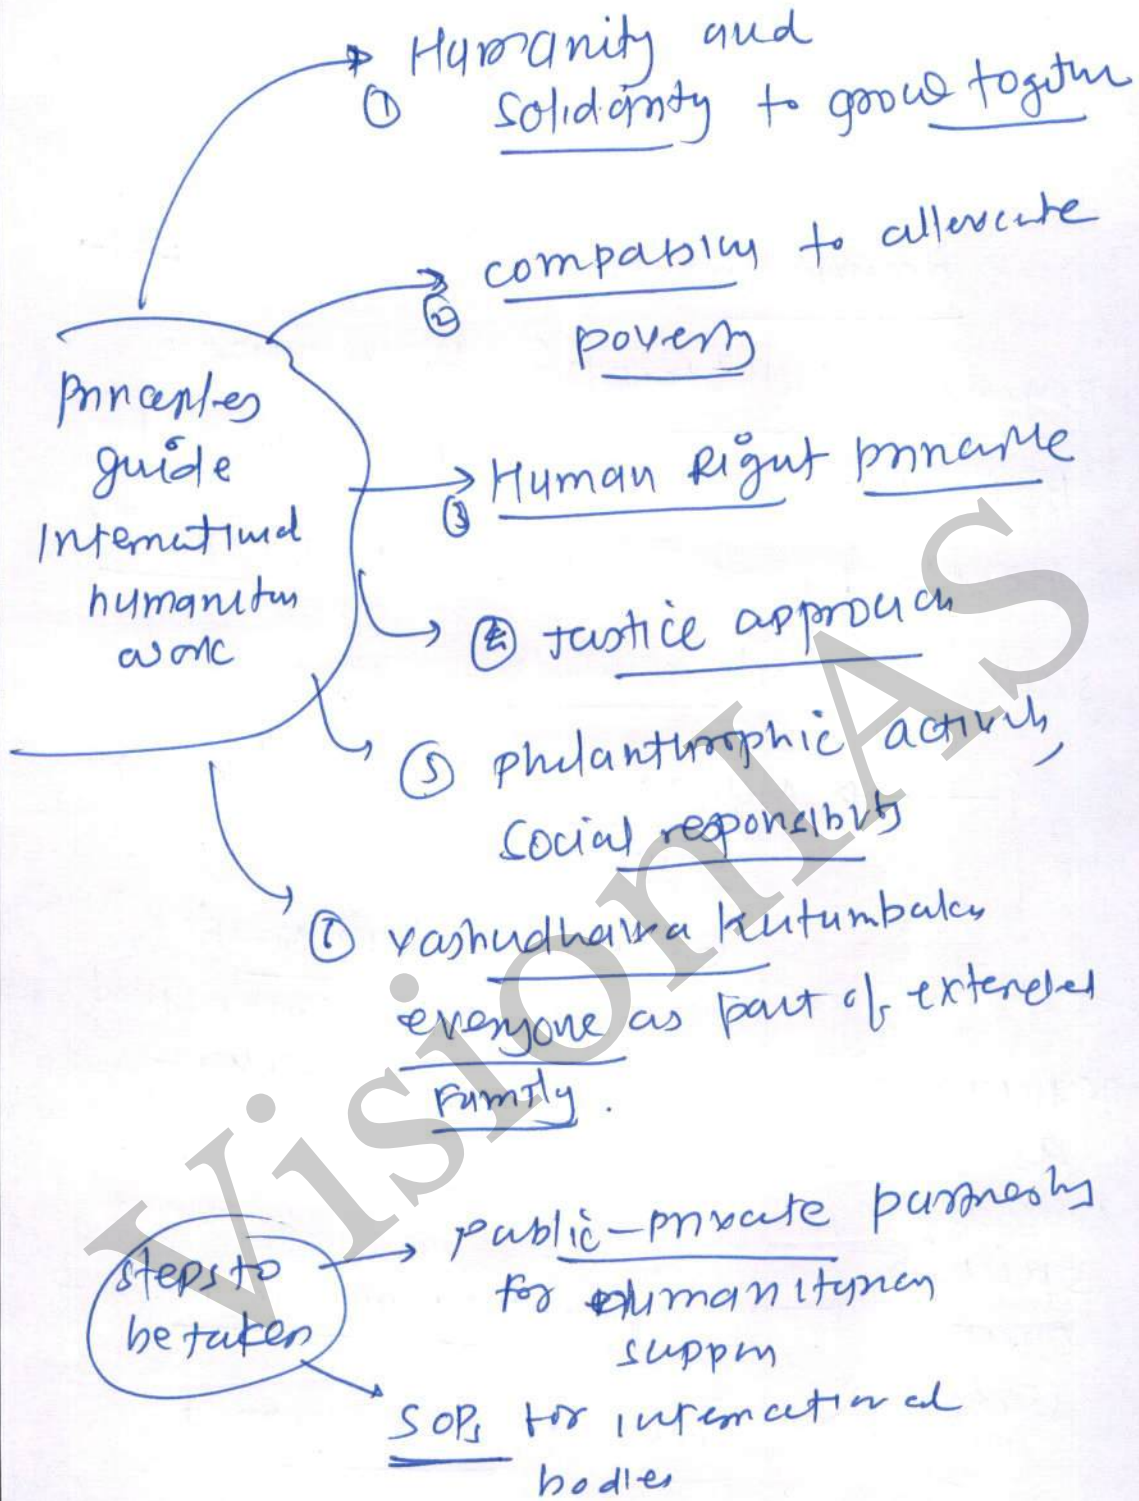 ① Humanity and
solidarity to grow together
② compassion to alleviate
poverty
Principles
guide
International
humanitarian
work
③ Human Right principle
④ Justice approach
⑤ philanthrophic activity,
social responsibility
⑥ Vashudhaiva Kutumbakam
everyone as part of extended
Family.
steps to
be taken
public-private partnership
for humanitarian
support
SOPs for international
bodies
VisionIAS